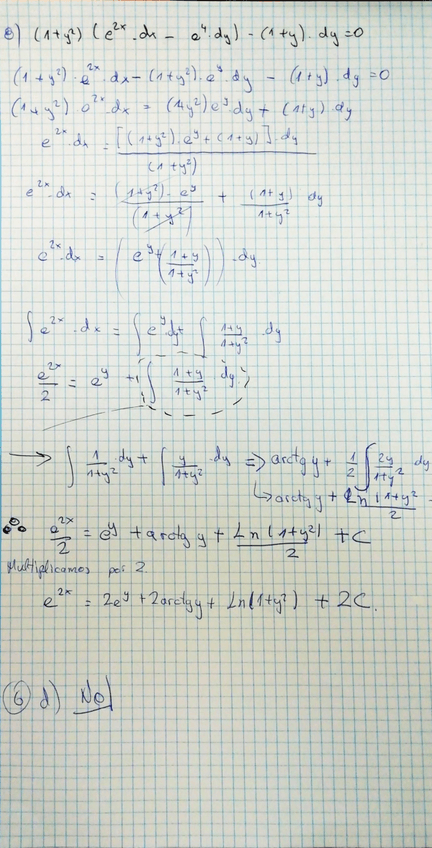 e) (1+y²) (e^2x · dx - e^y · dy) - (1+y) · dy = 0
(1+y²) · e^2x · dx - (1+y²) · e^y · dy - (1+y) · dy = 0
(1+y²) e^2x · dx = (1+y²) e^y · dy + (1+y) · dy
e^2x · dx = [(1+y²) · e^y + (1+y)] · dy / (1+y²)
e^2x · dx = (1+y²) · e^y / (1+y²) + (1+y) / 1+y² dy
e^2x · dx = (e^y + (1+y / 1+y²)) · dy
∫ e^2x · dx = ∫ e^y dy + ∫ 1+y / 1+y² · dy
e^2x / 2 = e^y + ∫ 1+y / 1+y² · dy
→ ∫ 1 / 1+y² · dy + ∫ y / 1+y² · dy ⇒ arctg y + 1/2 ∫ 2y / 1+y² dy
↳ arctg y + Ln |1+y² / 2
∴ e^2x / 2 = e^y + arctg y + Ln (1+y²) / 2 + C
Multiplicamos por 2.
e^2x = 2e^y + 2arctg y + Ln(1+y²) + 2C.
6 d) No